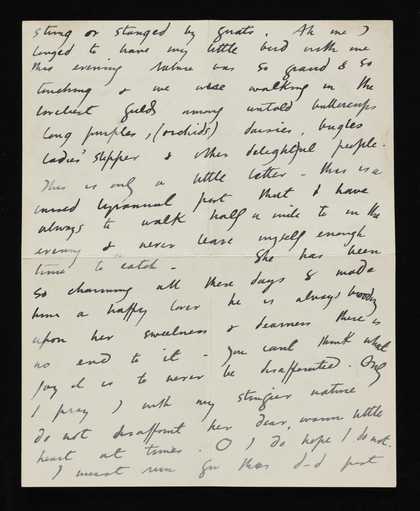 stung or stanged by gnats. Ah me I
longed to have my little bird with me
this evening Nature was so grand & so
touching & we were walking in the
loveliest fields among untold buttercups
long purples, (orchids) daisies, bugles
ladies' slipper & other delightful people.
This is only a little letter - this is a
cursed tyrannical post that I have
always to walk half a mile to in the
evening & never leave myself enough
time to catch - She has been
so charming all these days & made
him a happy lover he is always brooding
upon her sweetness & dearness there is
no end to it - you cant think what
joy it is to never be disappointed. Only
I pray I with my stingier nature
do not disappoint her dear, warm little
heart at times. O I do hope I do not.
I must run for this d-d post